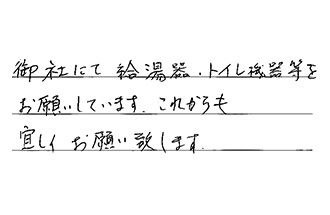 御社にて給湯器・トイレ機器等を
お願いしています。これからも
宜しくお願い致します。